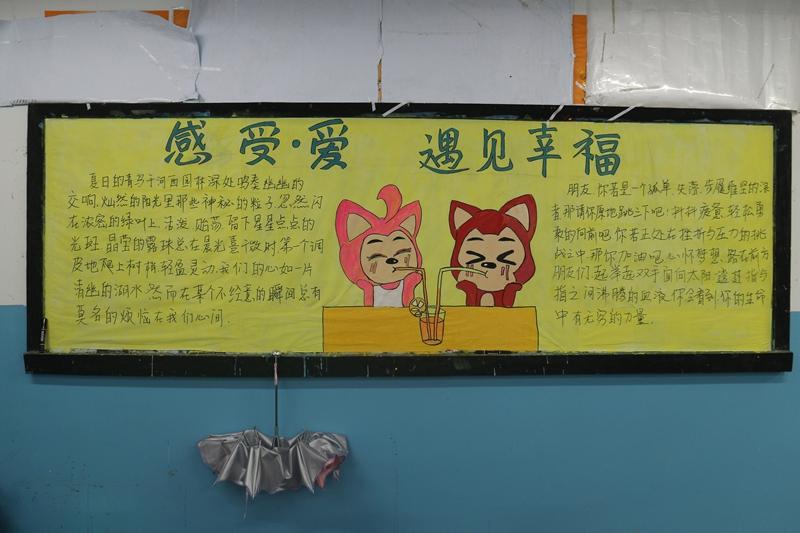 感受·爱 遇见幸福
夏日的青鸟于河西园林深处鸣奏幽幽的
交响,灿然的阳光里那些神秘的粒子忽然闪
在浓密的绿叶上,活泼、跳荡,留下星星点点的
光斑,晶莹的露珠总在晨光喜微时第一个调
皮地爬上树梢,轻盈灵动,我们的心如一片
清幽的湖水,然而在某个不经意的瞬间总有
莫名的烦恼在我们心间.
朋友,你若是一个孤单、失落、步履维坚的
者,那请你原地跳三下吧,抖抖疲惫,轻松
的向前吧,你若正处在挫折与压力的挑
战之中,那你加油吧,心怀梦想,路在前方
朋友们,起举起双手面向太阳,透过指与
指之间沸腾的血液,你会看到,你的生命
中有无穷的力量.